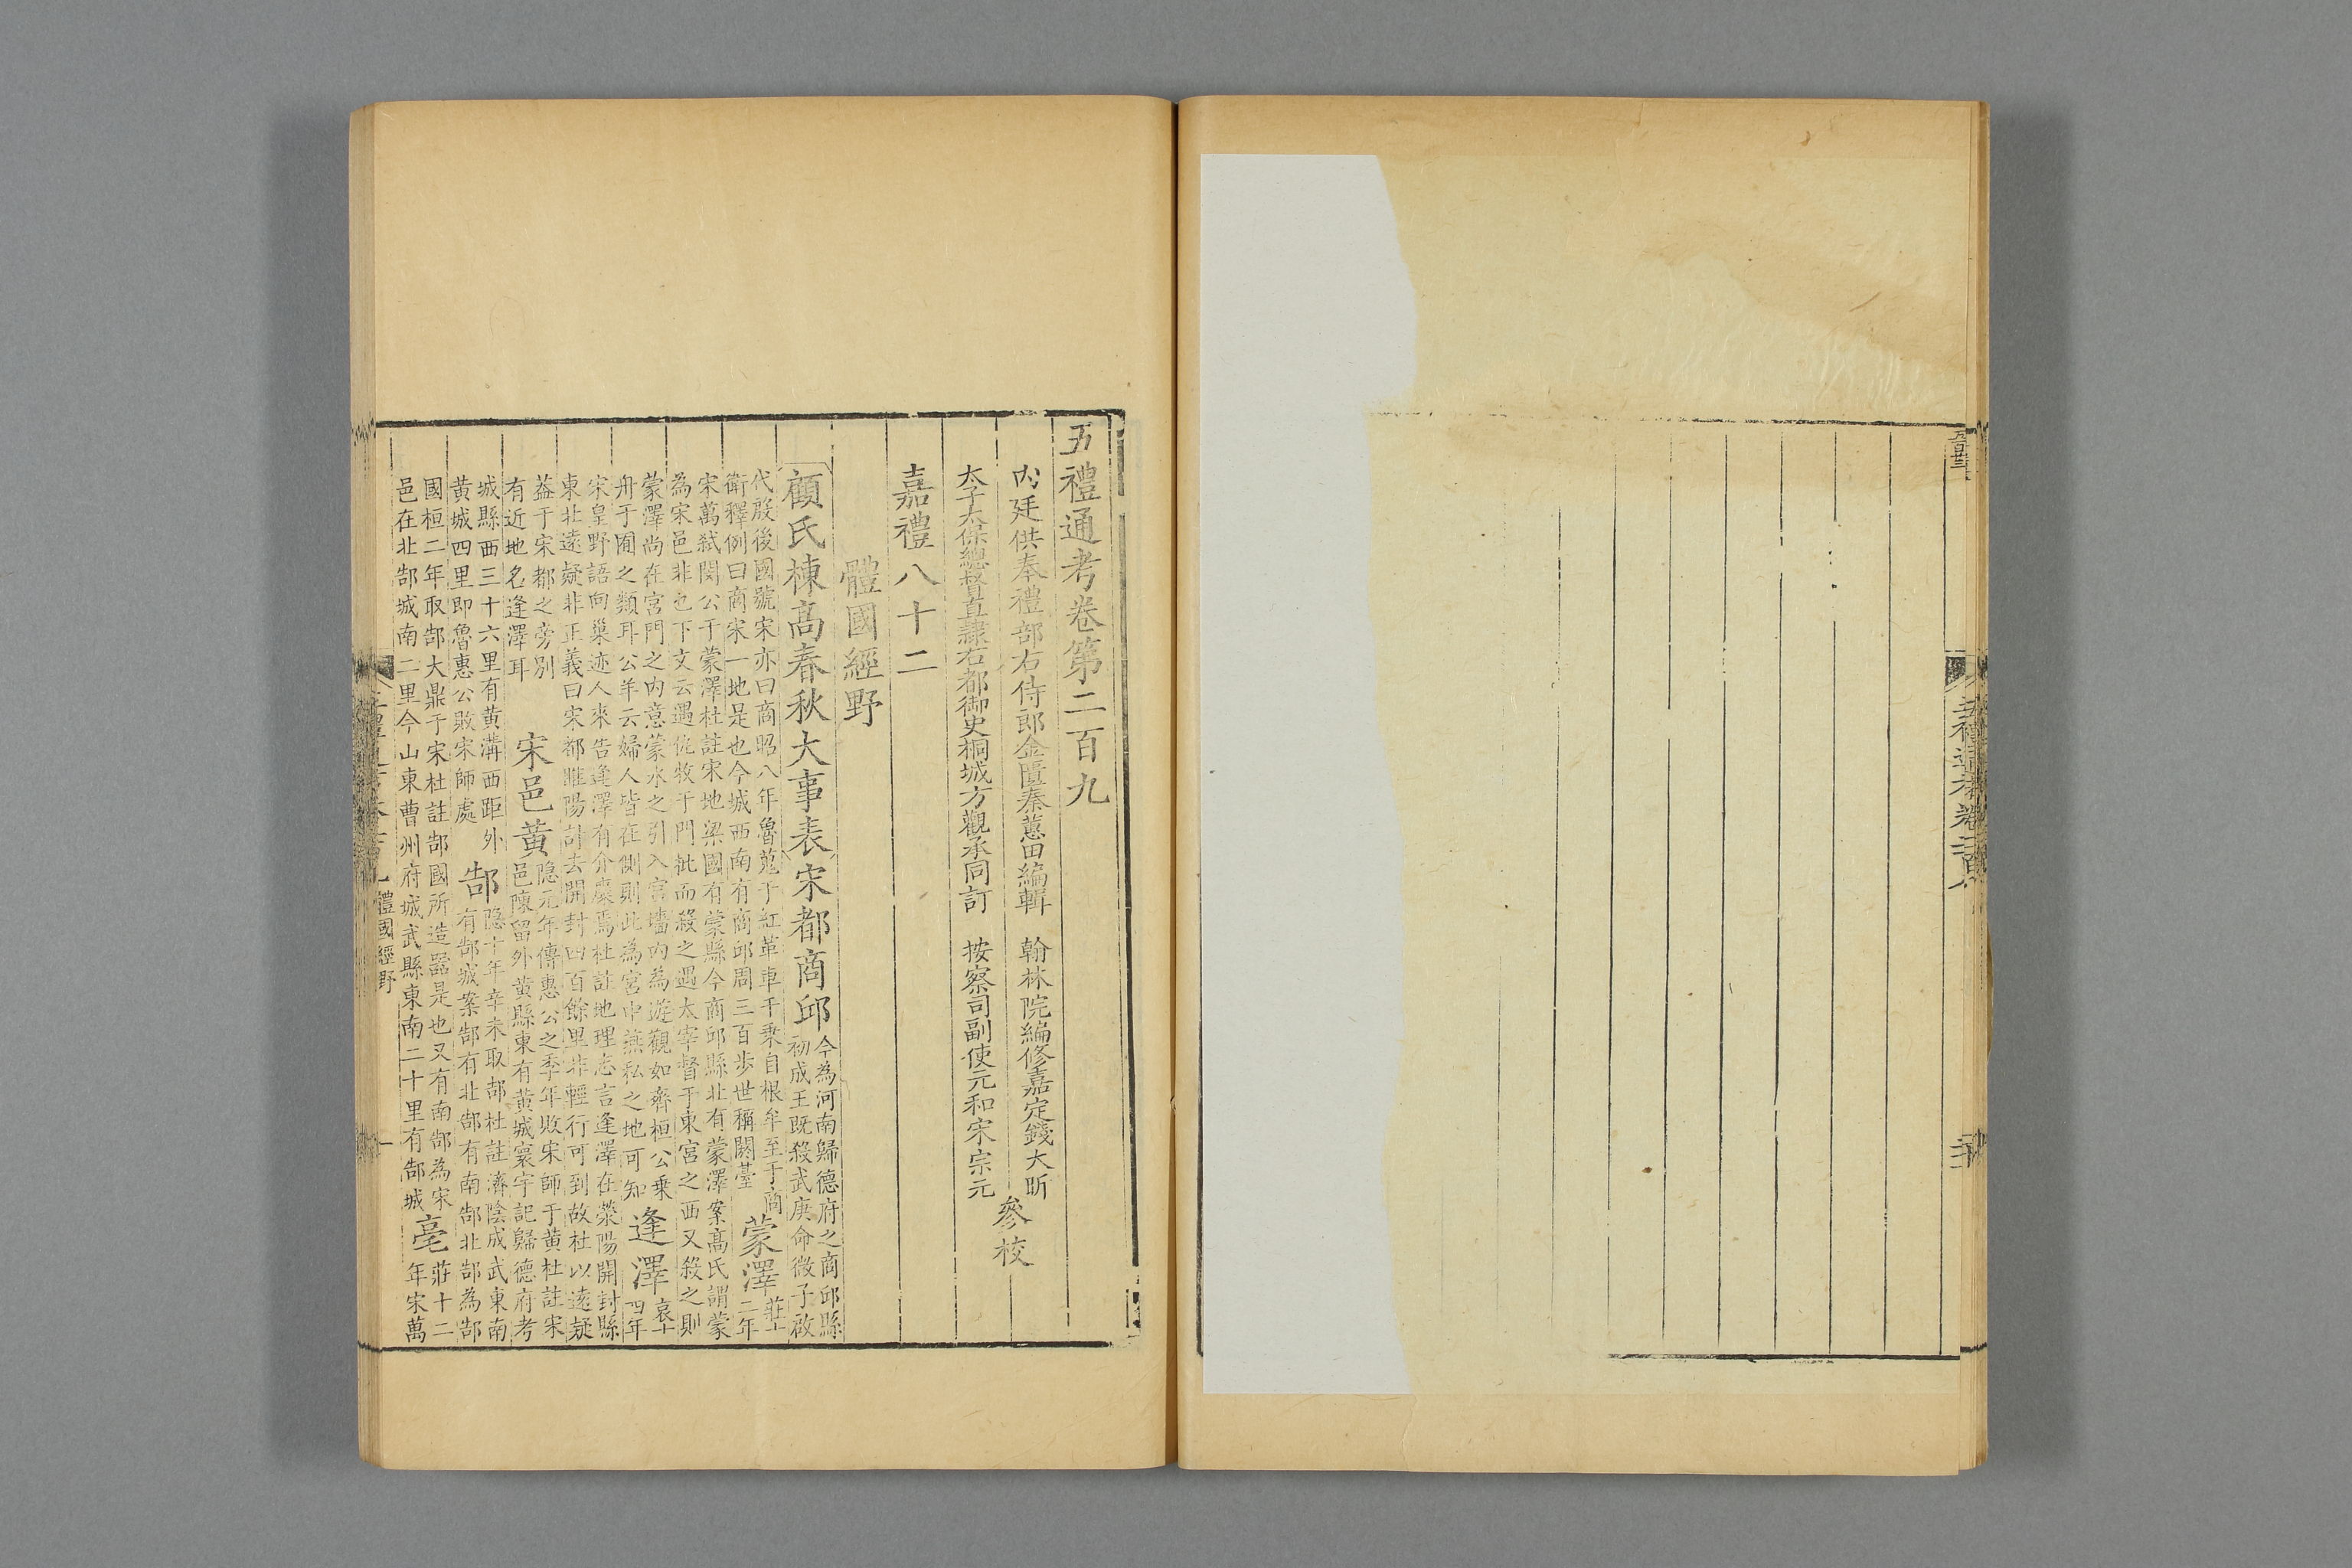 五禮通考卷二百八
五禮通考卷第二百九
內廷供奉禮部右侍郎金匱秦蕙田編輯　翰林院編修嘉定錢大昕
太子太保總督直隸右都御史桐城方觀承同訂　按察司副使元和宋宗元
參校
嘉禮八十二
體國經野
顧氏棟高春秋大事表宋都商邱
今為河南歸德府之商邱縣
初成王既殺武庚命微子啟
代殷後國號宋亦曰商昭八年魯蒐于紅革車千乗自根牟至于商
衛釋例曰商宋一地是也今城西南有商邱周三百步世稱閼臺
蒙澤
莊十
二年
宋萬弒閔公于蒙澤杜註宋地梁國有蒙縣今商邱縣北有蒙澤案高氏謂蒙
為宋邑非也下文云遇仇牧于門批而殺之遇太宰督于東宮之西又殺之則
蒙澤尚在宮門之內意蒙水之引入宮墻內為遊觀如齊桓公乗
舟于囿之類耳公羊云婦人皆在側則此為宮中燕私之地可知
逢澤
哀十
四年
宋皇野語向巢迹人來告逢澤有介麋焉杜註地理志言逢澤在滎陽開封縣
東北遠疑非正義曰宋都睢陽計去開封四百餘里非輕行可到故杜以遠疑
葢于宋都之旁別
有近地名逢澤耳
宋邑黃
隱元年傳惠公之季年敗宋師于黃杜註宋
邑陳留外黃縣東有黃城寰宇記歸德府考
城縣西三十六里有黃溝西距外
黃城四里即魯惠公敗宋師處
郜
隱十年辛未取郜杜註濟陰成武東南
有郜城案郜有北郜有南郜北郜為郜
國桓二年取郜大鼎于宋杜註郜國所造器是也又有南郜為宋
邑在北郜城南二里今山東曹州府城武縣東南二十里有郜城
亳
莊十二
年宋萬
體國經野